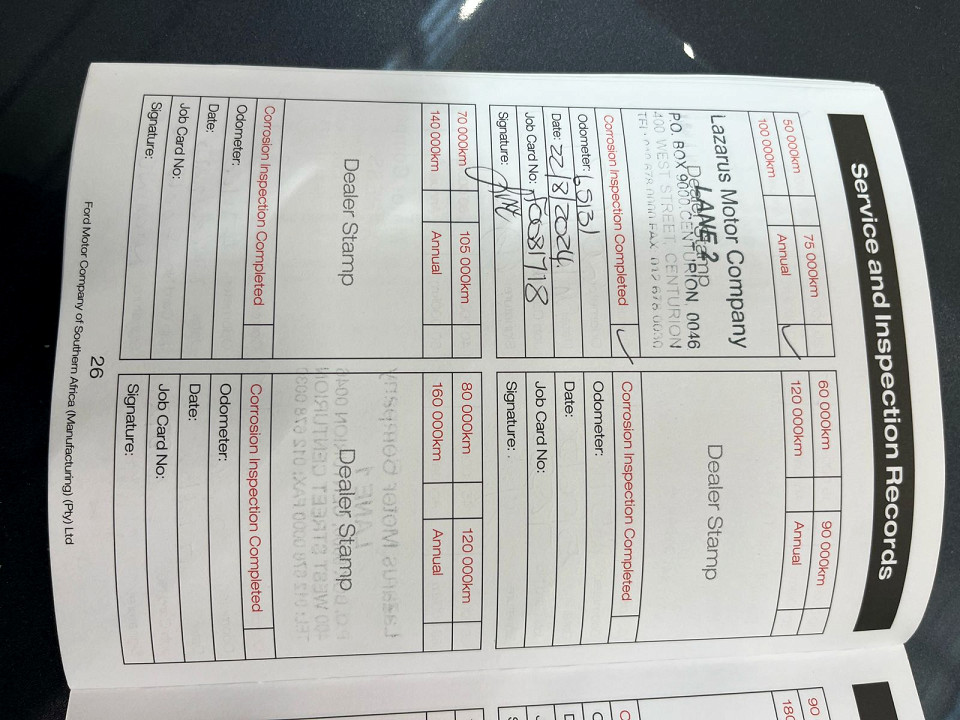 Service and Inspection Records
50 000km
75 000km
100 000km
Annual ✓
Dealer Stamp
Lazarus Motor Company
LANE 2
P.O. BOX 9000 CENTURION, 0046
400 WEST STREET, CENTURION
TEL: 012 678 0000 FAX: 012 678 0030
Corrosion Inspection Completed ✓
Odometer: 65131
Date: 22/8/2024
Job Card No:
Signature:
60 000km
90 000km
120 000km
Annual
Dealer Stamp
Corrosion Inspection Completed
Odometer:
Date:
Job Card No:
Signature:
70 000km
105 000km
140 000km
Annual
Dealer Stamp
Corrosion Inspection Completed
Odometer:
Date:
Job Card No:
Signature:
80 000km
120 000km
160 000km
Annual
Dealer Stamp
Corrosion Inspection Completed
Odometer:
Date:
Job Card No:
Signature:
26
Ford Motor Company of Southern Africa (Manufacturing) (Pty) Ltd
90
180